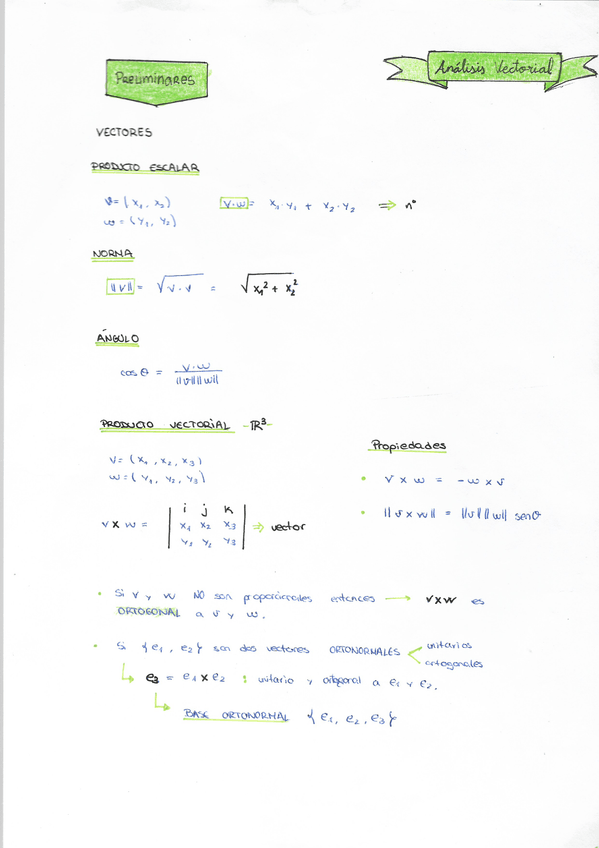 Preliminares
Análisis Vectorial
VECTORES
PRODUCTO ESCALAR
v = (x₁, x₂)
w = (y₁, y₂)
v·w = x₁·y₁ + x₂·y₂ ⇒ nº
NORMA
||v|| = √(v·v) = √(x₁² + x₂²)
ÁNGULO
cos θ = v·w / ||v|| ||w||
PRODUCTO VECTORIAL - ℝ³-
v = (x₁, x₂, x₃)
w = (y₁, y₂, y₃)
v x w = | i j k |
| x₁ x₂ x₃ | ⇒ vector
| y₁ y₂ y₃ |
Propiedades
• v x w = -w x v
• ||v x w|| = ||v|| ||w|| senθ
• Si v y w NO son proporcionales entonces → vxw es
ORTOGONAL a v y w.
• Si {e₁, e₂} son dos vectores ORTONORMALES < unitarios
ortogonales
↳ e₃ = e₁ x e₂ : unitario y ortogonal a e₁ y e₂.
↳ BASE ORTONORMAL {e₁, e₂, e₃}